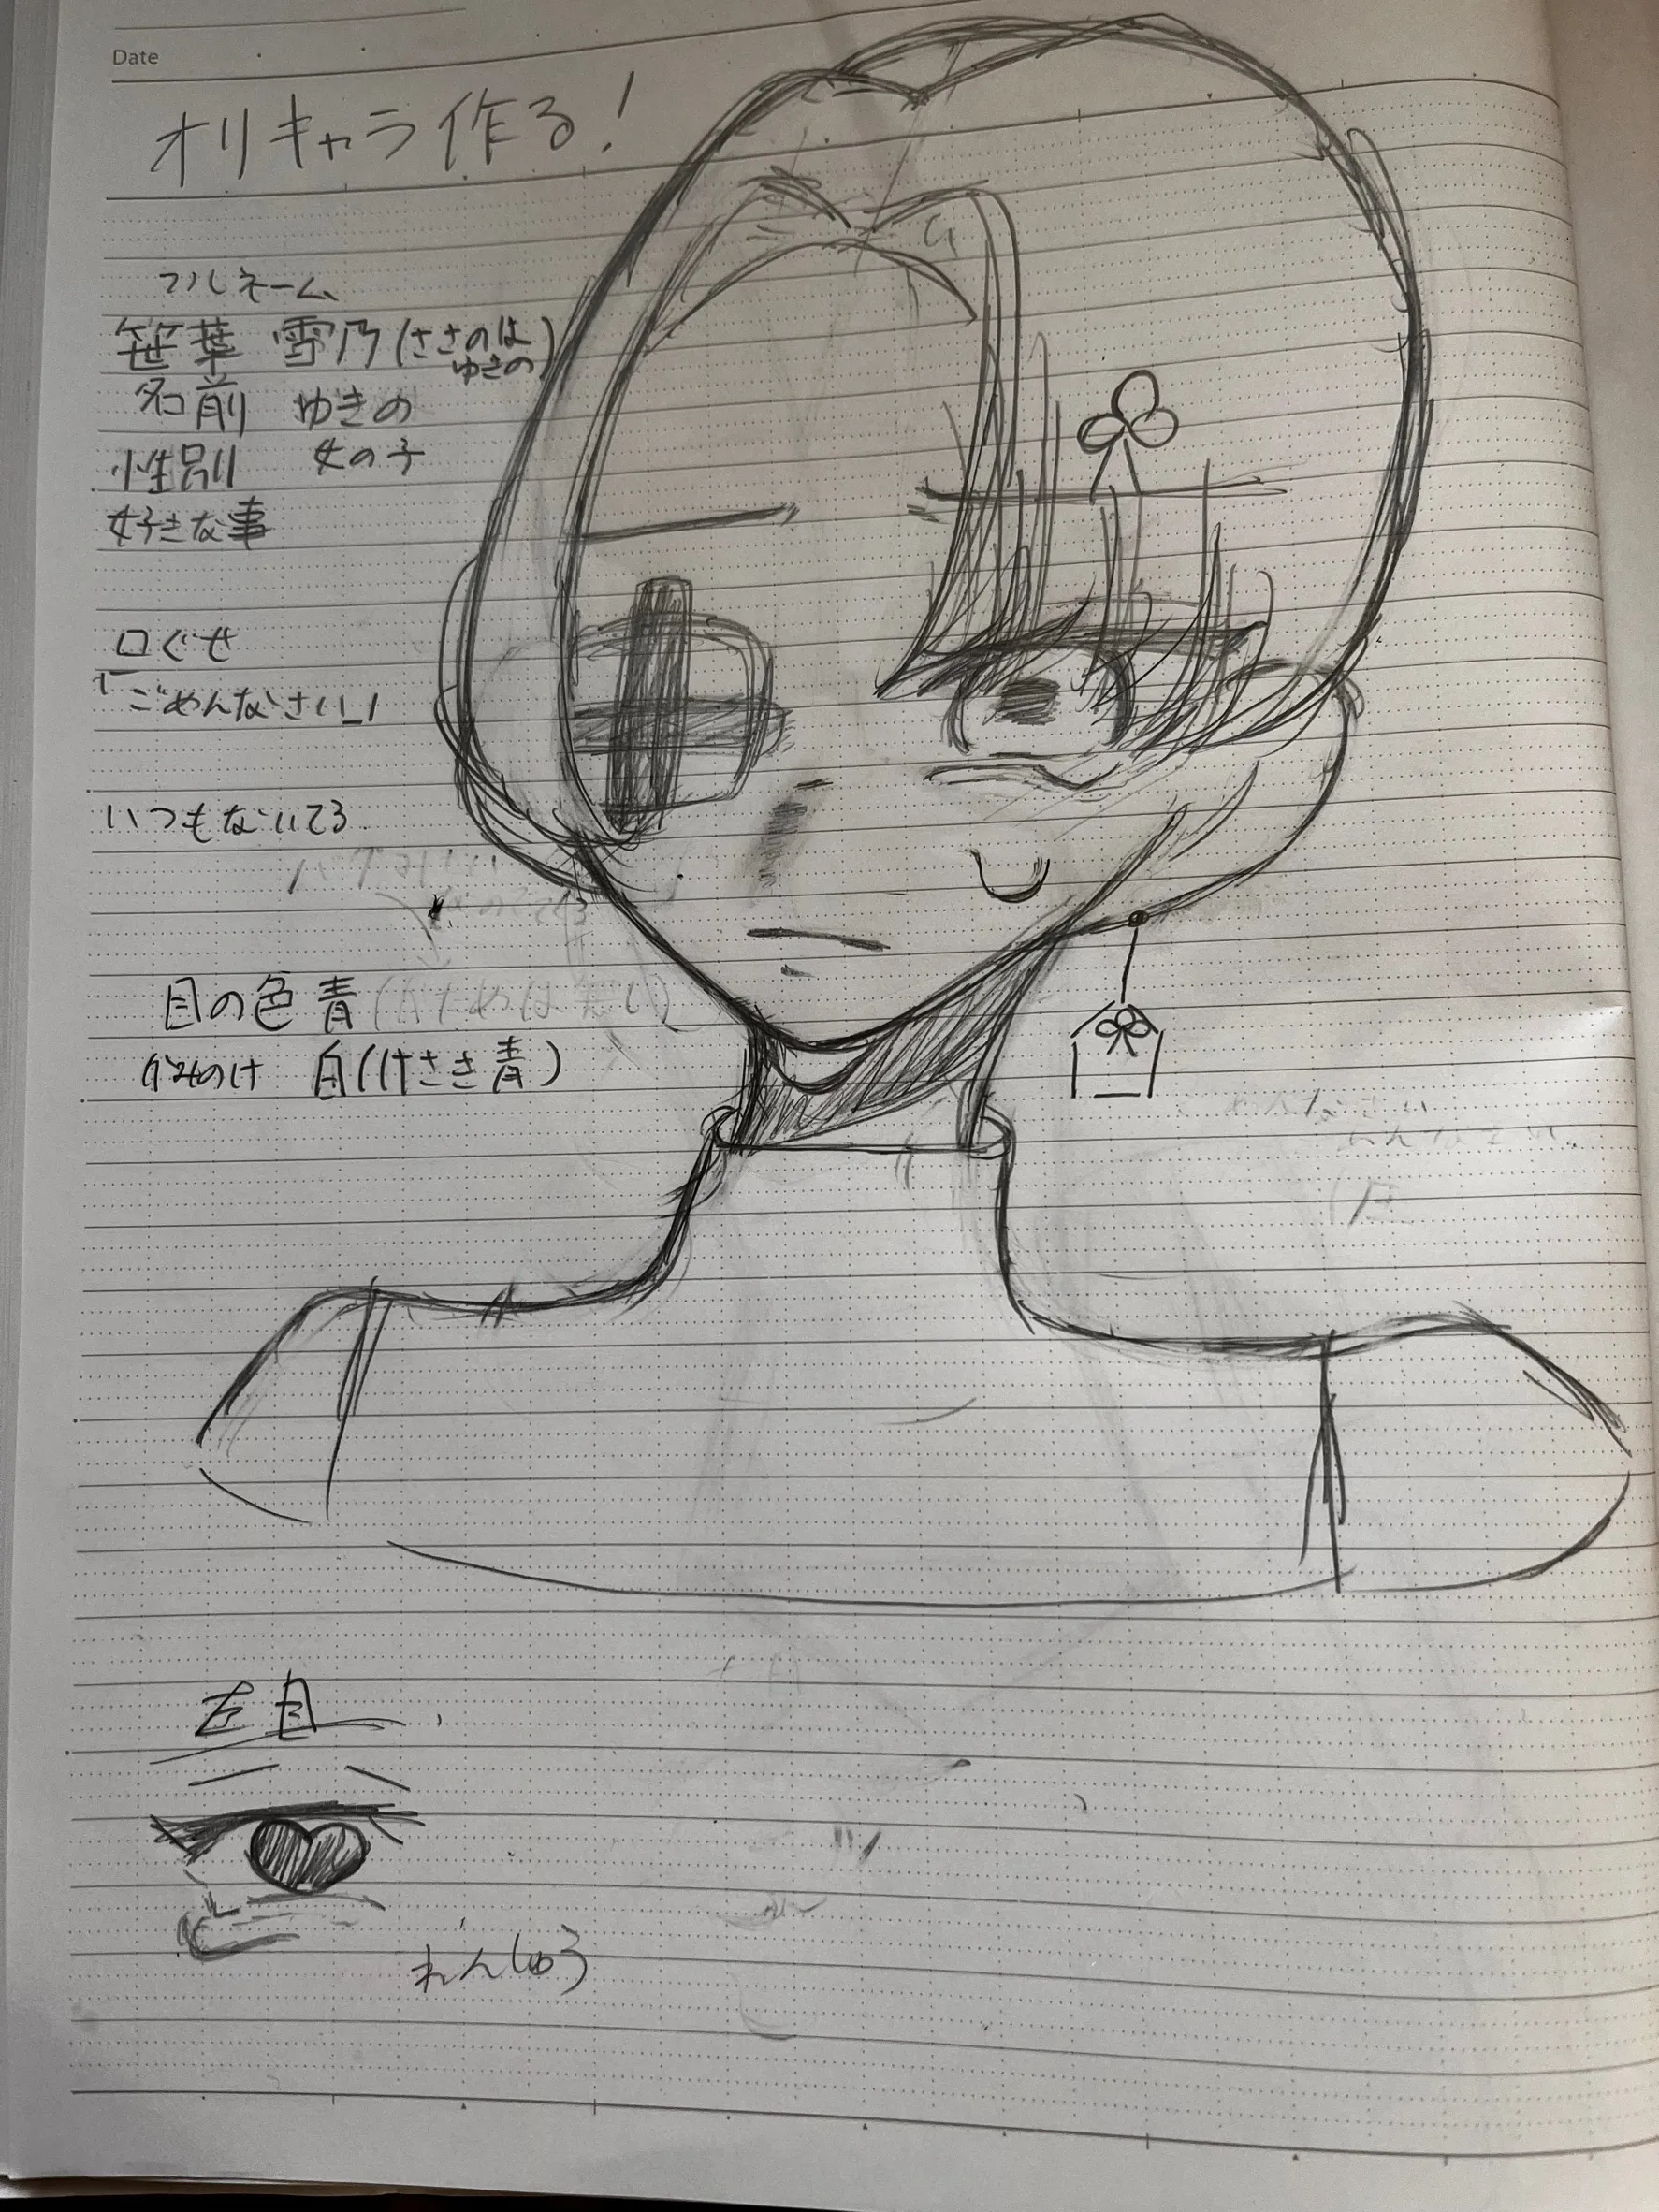 Date
オリキャラ作る!
フルネーム
笹葉 雪乃(ささのは
ゆきの)
名前 ゆきの
性別 女の子
好きな事
口ぐせ
「ごめんなさい」
いつもないてる
目の色 青
かみのけ 白(けさき青)
左目
れんしゅう